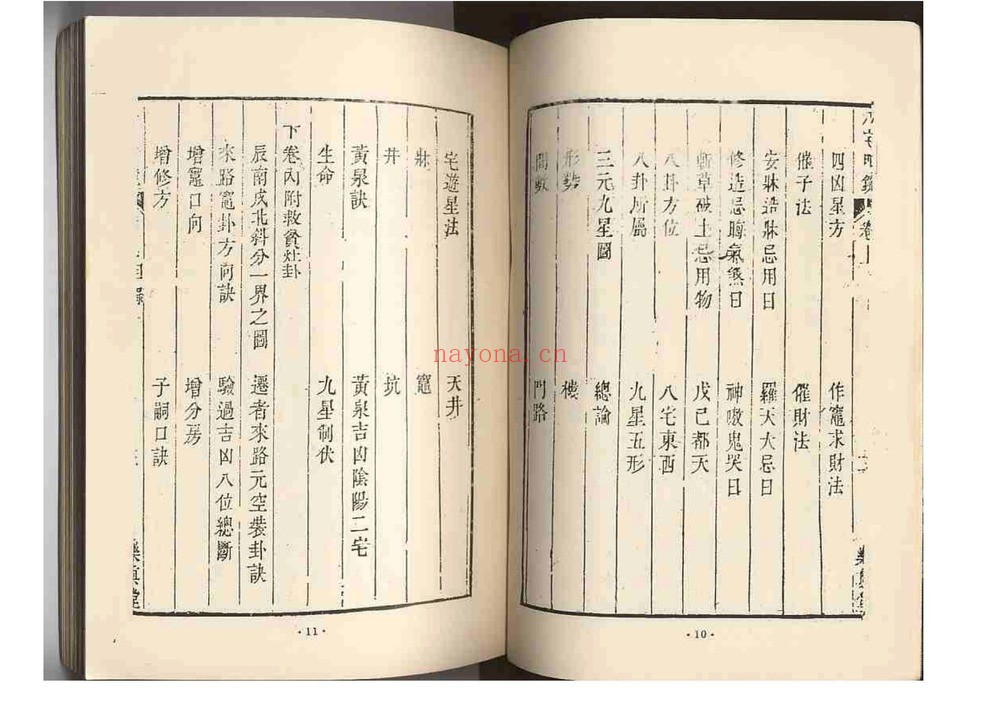 四凶星方 作竈求財法
催子法 催財法
安牀造牀忌用日 羅天大忌日
修造忌晦氣煞日 神嗷鬼哭日
斬草破土忌用物 戊己都天
八卦方位 八宅東西
八卦所屬 九星五形
三元九星圖 總論
形勢 樓
間數 門路
·10·
宅遊星法 天井
牀 竈
井 坑
黃泉訣 黃泉吉凶陰陽二宅
生命 九星制伏
下卷內附救貧灶卦
辰南戌北斜分一界之圖 遷者來路元空裝卦訣
來路竈卦方向訣 驗過吉凶八位總斷
增竈口向 增分房
增修方 子嗣口訣
樂真堂
·11·
nayona.cn